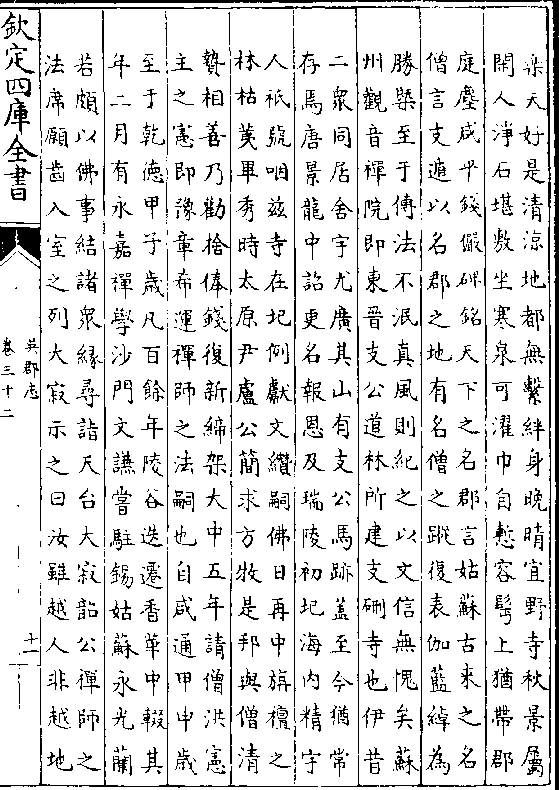 樂天好是清涼地都無繫絆身晚晴宜野寺秋景屬
閑人淨石堪敷坐寒泉可濯巾自慙容鬢上猶帶郡
庭塵咸平錢儼碑銘天下之名郡言姑蘇古來之名
僧言支遁以名郡之地有名僧之蹤復表伽藍綽為
勝槩至于傳法不泯真風則紀之以文信無愧矣蘇
州觀音禪院即東晉支公道林所建支硎寺也伊昔
二衆同居舍宇尤廣其山有支公馬跡蓋至今猶常
存焉唐景龍中詔更名報恩及瑞陵初圮海内精宇
人祇號咽兹寺在圮例獻文纘嗣佛日再中旃檀之
林枯荑畢秀時太原尹盧公簡求方牧是邦與僧清
贄相善乃勸捨俸錢復新締架大中五年請僧洪憲
主之憲即豫章希運禪師之法嗣也自咸通甲申歲
至于乾德甲子歲凡百餘年陵谷迭遷香華中輟其
年二月有永嘉禪學沙門文謙嘗駐錫姑蘇永光蘭
若頗以佛事結諸衆緣尋詣天台大寂韶公禪師之
法席願齒入室之列大寂示之曰汝雖越人非越地
欽定四庫全書
吳郡志
卷三十二
十一